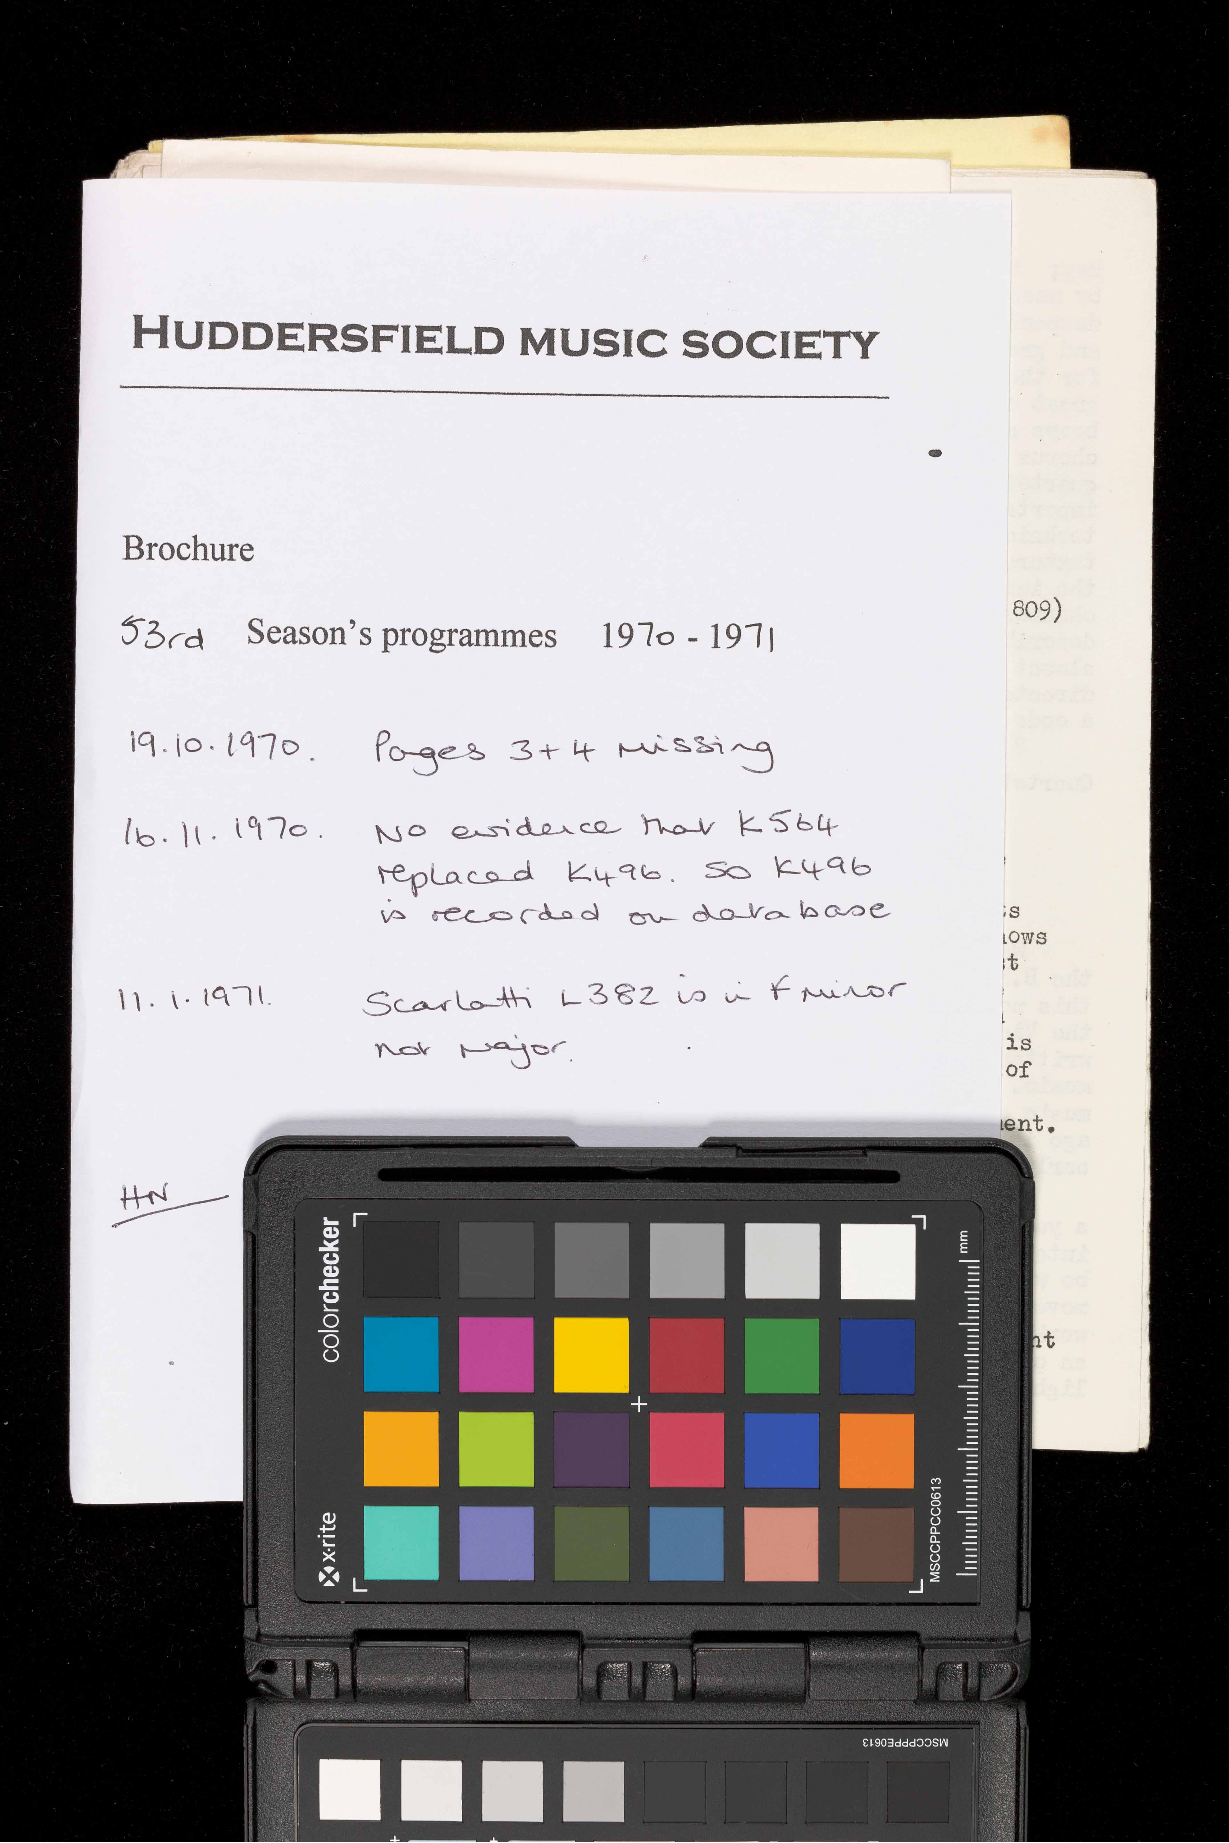 HUDDERSFIELD MUSIC SOCIETY
Brochure
53rd Season's programmes 1970 - 1971
19.10.1970. Pages 3+4 missing
16.11.1970. No evidence that K564
replaced K496. So K496
is recorded on database
11.1.1971. Scarlatti L382 is in F minor
not major.
HN
809)
ows
st
is
of
ent.
nt
colorchecker
x-rite
mm
MSCCPPCC0613
MSCCPPPE0613